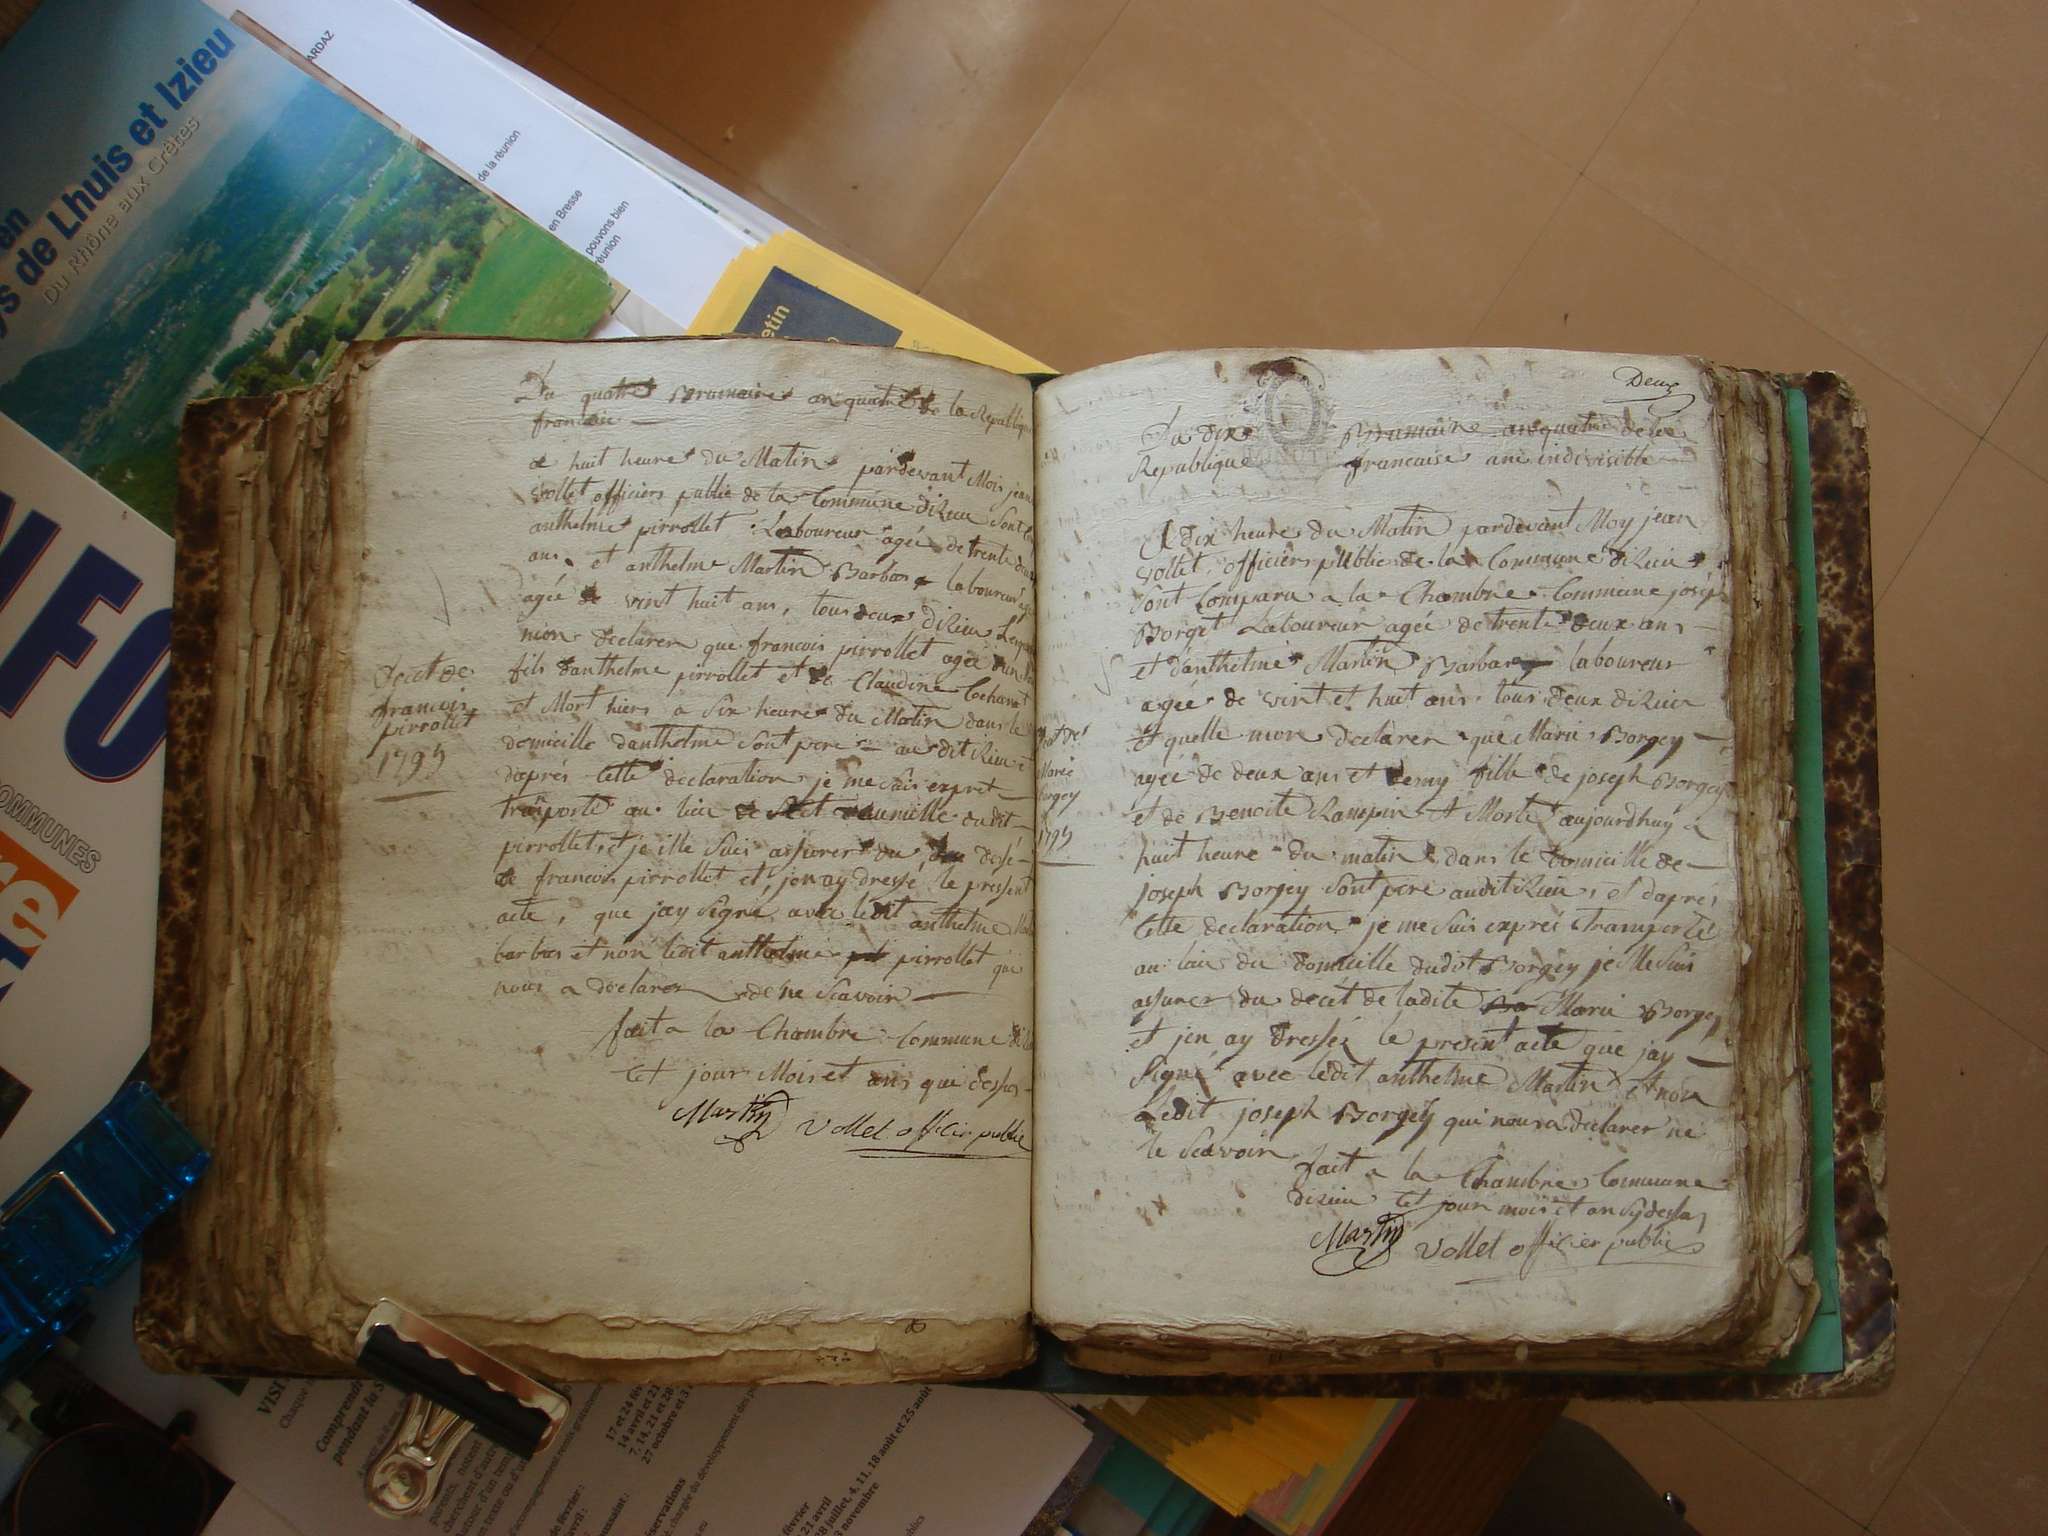 en
ys de Lhuis et Izieu
Du Rhône aux Crêtes
ARDAZ
de la réunion
en Bresse
pouvons bien
réunion
etin
NFO
COMMUNES
re
Du quatre Brumaire an quatre de la Republique
francaise
a huit heure du Matin pardevant Mois jean
vollet officiers public de la Commune diZieu Sont
anthelme pirrollet Laboureur agée de trente deux
ans et anthelme Martin Barbas laboureur
agée de vint huit ans, tous deux diZieu
mon declarer que francois pirrollet agée
fils danthelme pirrollet et de Claudine
et Mort hiers a Six heure du Matin dans le
domicille danthelme Sont pere au dit iZieu
dapres Cette declaration je me Suis expret
trasporte au lieu
pirrollet, et je me Suis assurer du desé
de francois pirrollet et jen ay dressé le pressent
acte, que jay Signé avec ledit anthelme
barbas et non ledit anthelme pirrollet qui
nous a declarer de ne Scavoir
fait a la Chambre Commune
Cet jour Mois et ans que dessus
Martin Vollet officier public
Decet de
francois
pirrollet
1795
Deux
Du dix Brumaire an quatre de la
Republique francaise une indivisible
MINUTE
A dix heure du Matin pardevant Moy jean
vollet officiers public de la Commune diZieu
Sont Comparu a la Chambre Commune joseph
Borget Laboureur agée de trente deux ans
et danthelme Martin Barbas laboureur
agée de vint et huit ans tous deux diZieu
et quelle mon declarer que Marie Borgey
agée de deux ans et demy fille de joseph Borgey
et de Benoite et Morte aujourdhuy a
huit heure du matin dans le domicille de
joseph Borgey Sont pere audit iZieu, et dapres
Cette declaration je me Suis expres transporté
au lieu du domicille dudit Borgey je Me Suis
assurer du decet de ladite Marie Borgey
et jen ay dressez le present acte que jay
Signé avec ledit anthelme Martin et non
Ledit joseph Borgey qui nous a declarer ne
le Scavoir
fait a la Chambre Commune
diZieu Cet jour mois et an Sydessus
Martin Vollet officier public
Marie
Borgey
1795
VISI
Comprendr
pendant la S
17 et 24 fév
14 avril et 21
7, 14, 21 et 28
27 octobre et 3
chargée du développement des
février
21 avril
28 juillet, 4, 11, 18 août et 25 août
novembre